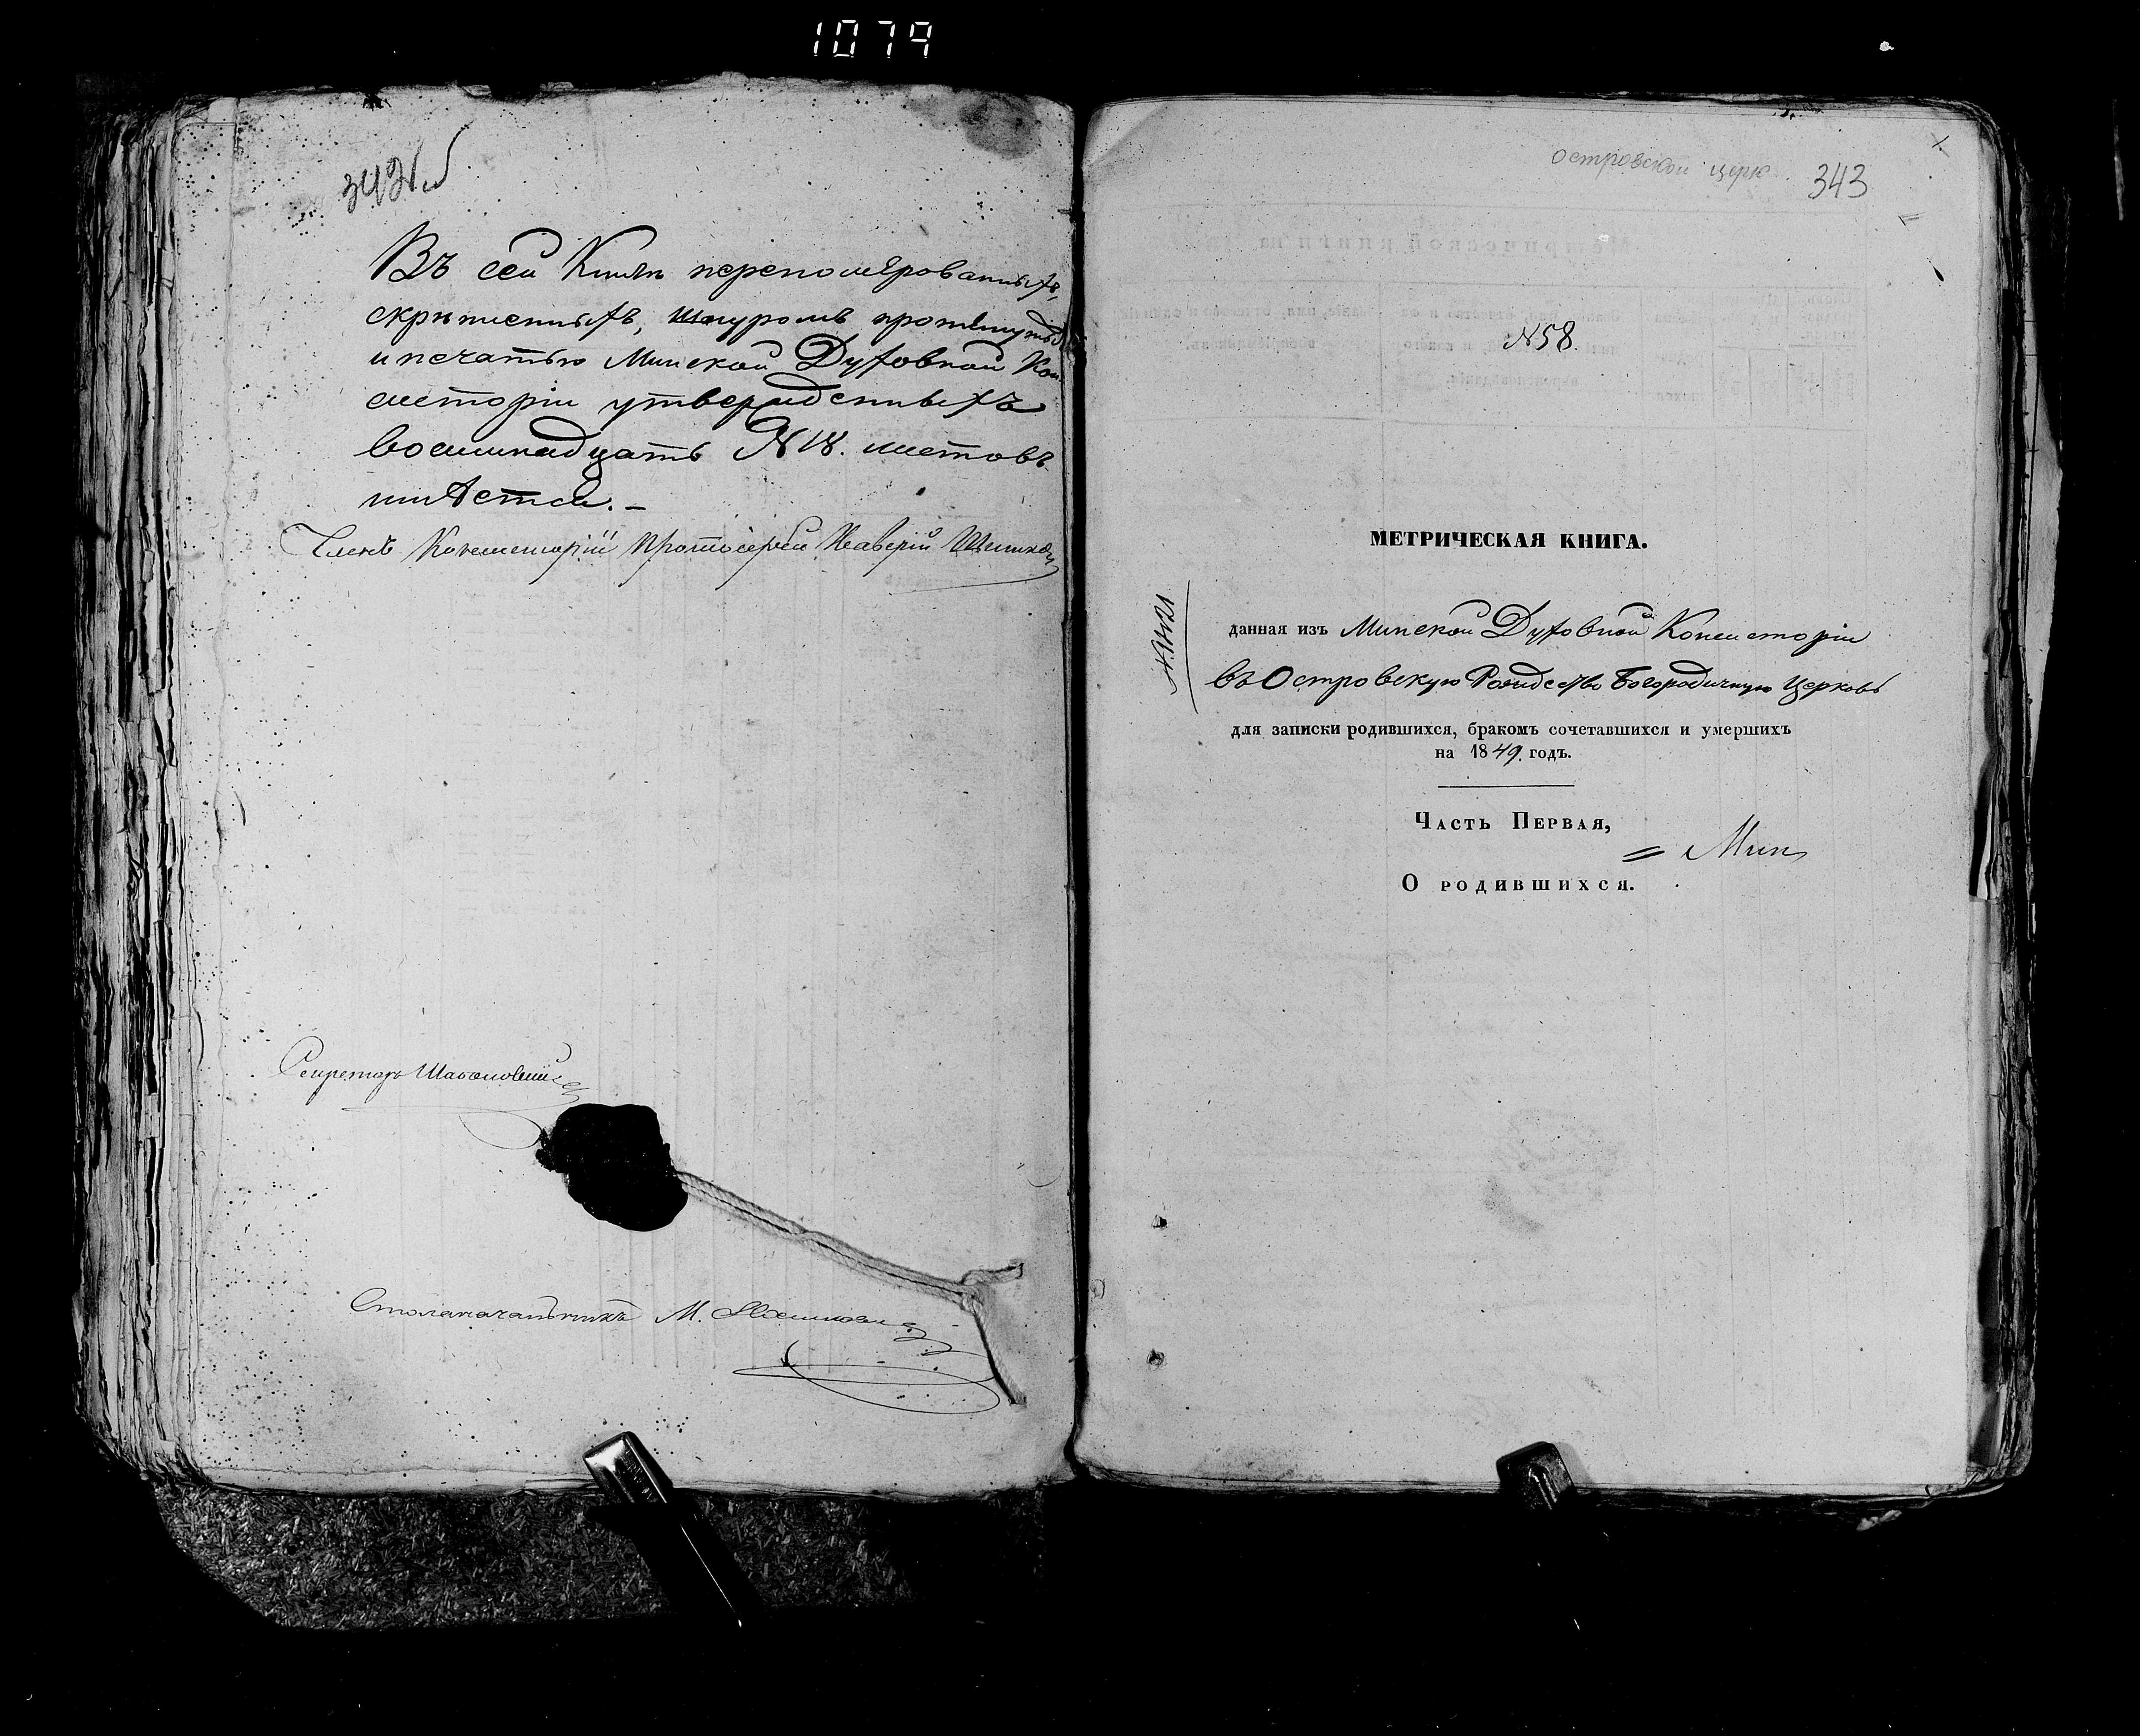 1079
342
Въ сей Книгѣ переномерованныхъ,
скрѣпленныхъ, шнуромъ протянутыхъ
и печатью Минской Духовной Кон
систоріи утвержденныхъ
восемнадцать N 18. листовъ
имѣется.
Членъ Консисторіи Протоіерей
Секретарь
Столоначальникъ М.
Островской церк
343
N 58.
МЕТРИЧЕСКАЯ КНИГА.
данная изъ Минской Духовной Консисторіи
въ Островскую Рождество Богородичную Церковь
для записки родившихся, бракомъ сочетавшихся и умершихъ
на 1849. годъ.
Часть Первая,
= Мин
О родившихся.